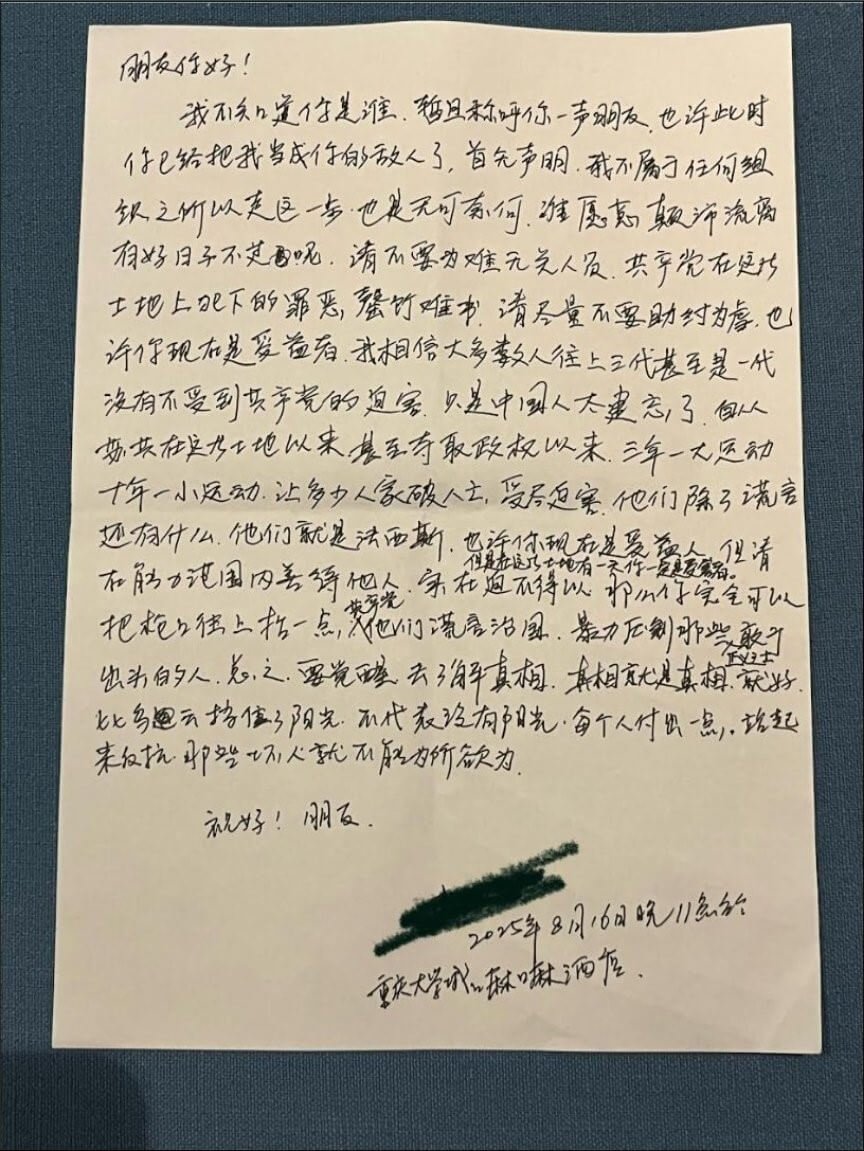 朋友你好！
我不知道你是谁、暂且称呼你一声朋友,也许此时
你已给把我当成你的敌人了,首先声明、我不属于任何组
织之所以走这一步、也是无可奈何、谁愿意颠沛流离
有好日子不过呢、请不要为难无关人员、共产党在这片
土地上犯下的罪恶,罄竹难书、请尽量不要助纣为虐、也
许你现在是受益者、我相信大多数人往上三代甚至是一代
没有不受到共产党的迫害、只是中国人太健忘了、自从
共在这片土地以来、甚至夺取政权以来、三年一大运动
十年一小运动、让多少人家破人亡,受尽迫害、他们除了谎言
还有什么、他们就是法西斯、也许你现在是受益人、但请
但是在这片土地有一天你一定是受害者。
在能力范围内善待他人、实在迫不得以、那么你完全可以
共产党
把枪口往上抬一点,他们谎言治国、暴力压制那些敢于
正义之士
出头的人、总之、要觉醒、去了解真相、真相就是真相、就好
比乌云挡住了阳光、不代表没有阳光、每个人付出一点,、站起
来反抗、那些坏人就不能为所欲为、
祝好！朋友、
2025年8月16日晚11点于
重庆大学城口麻口麻酒店、